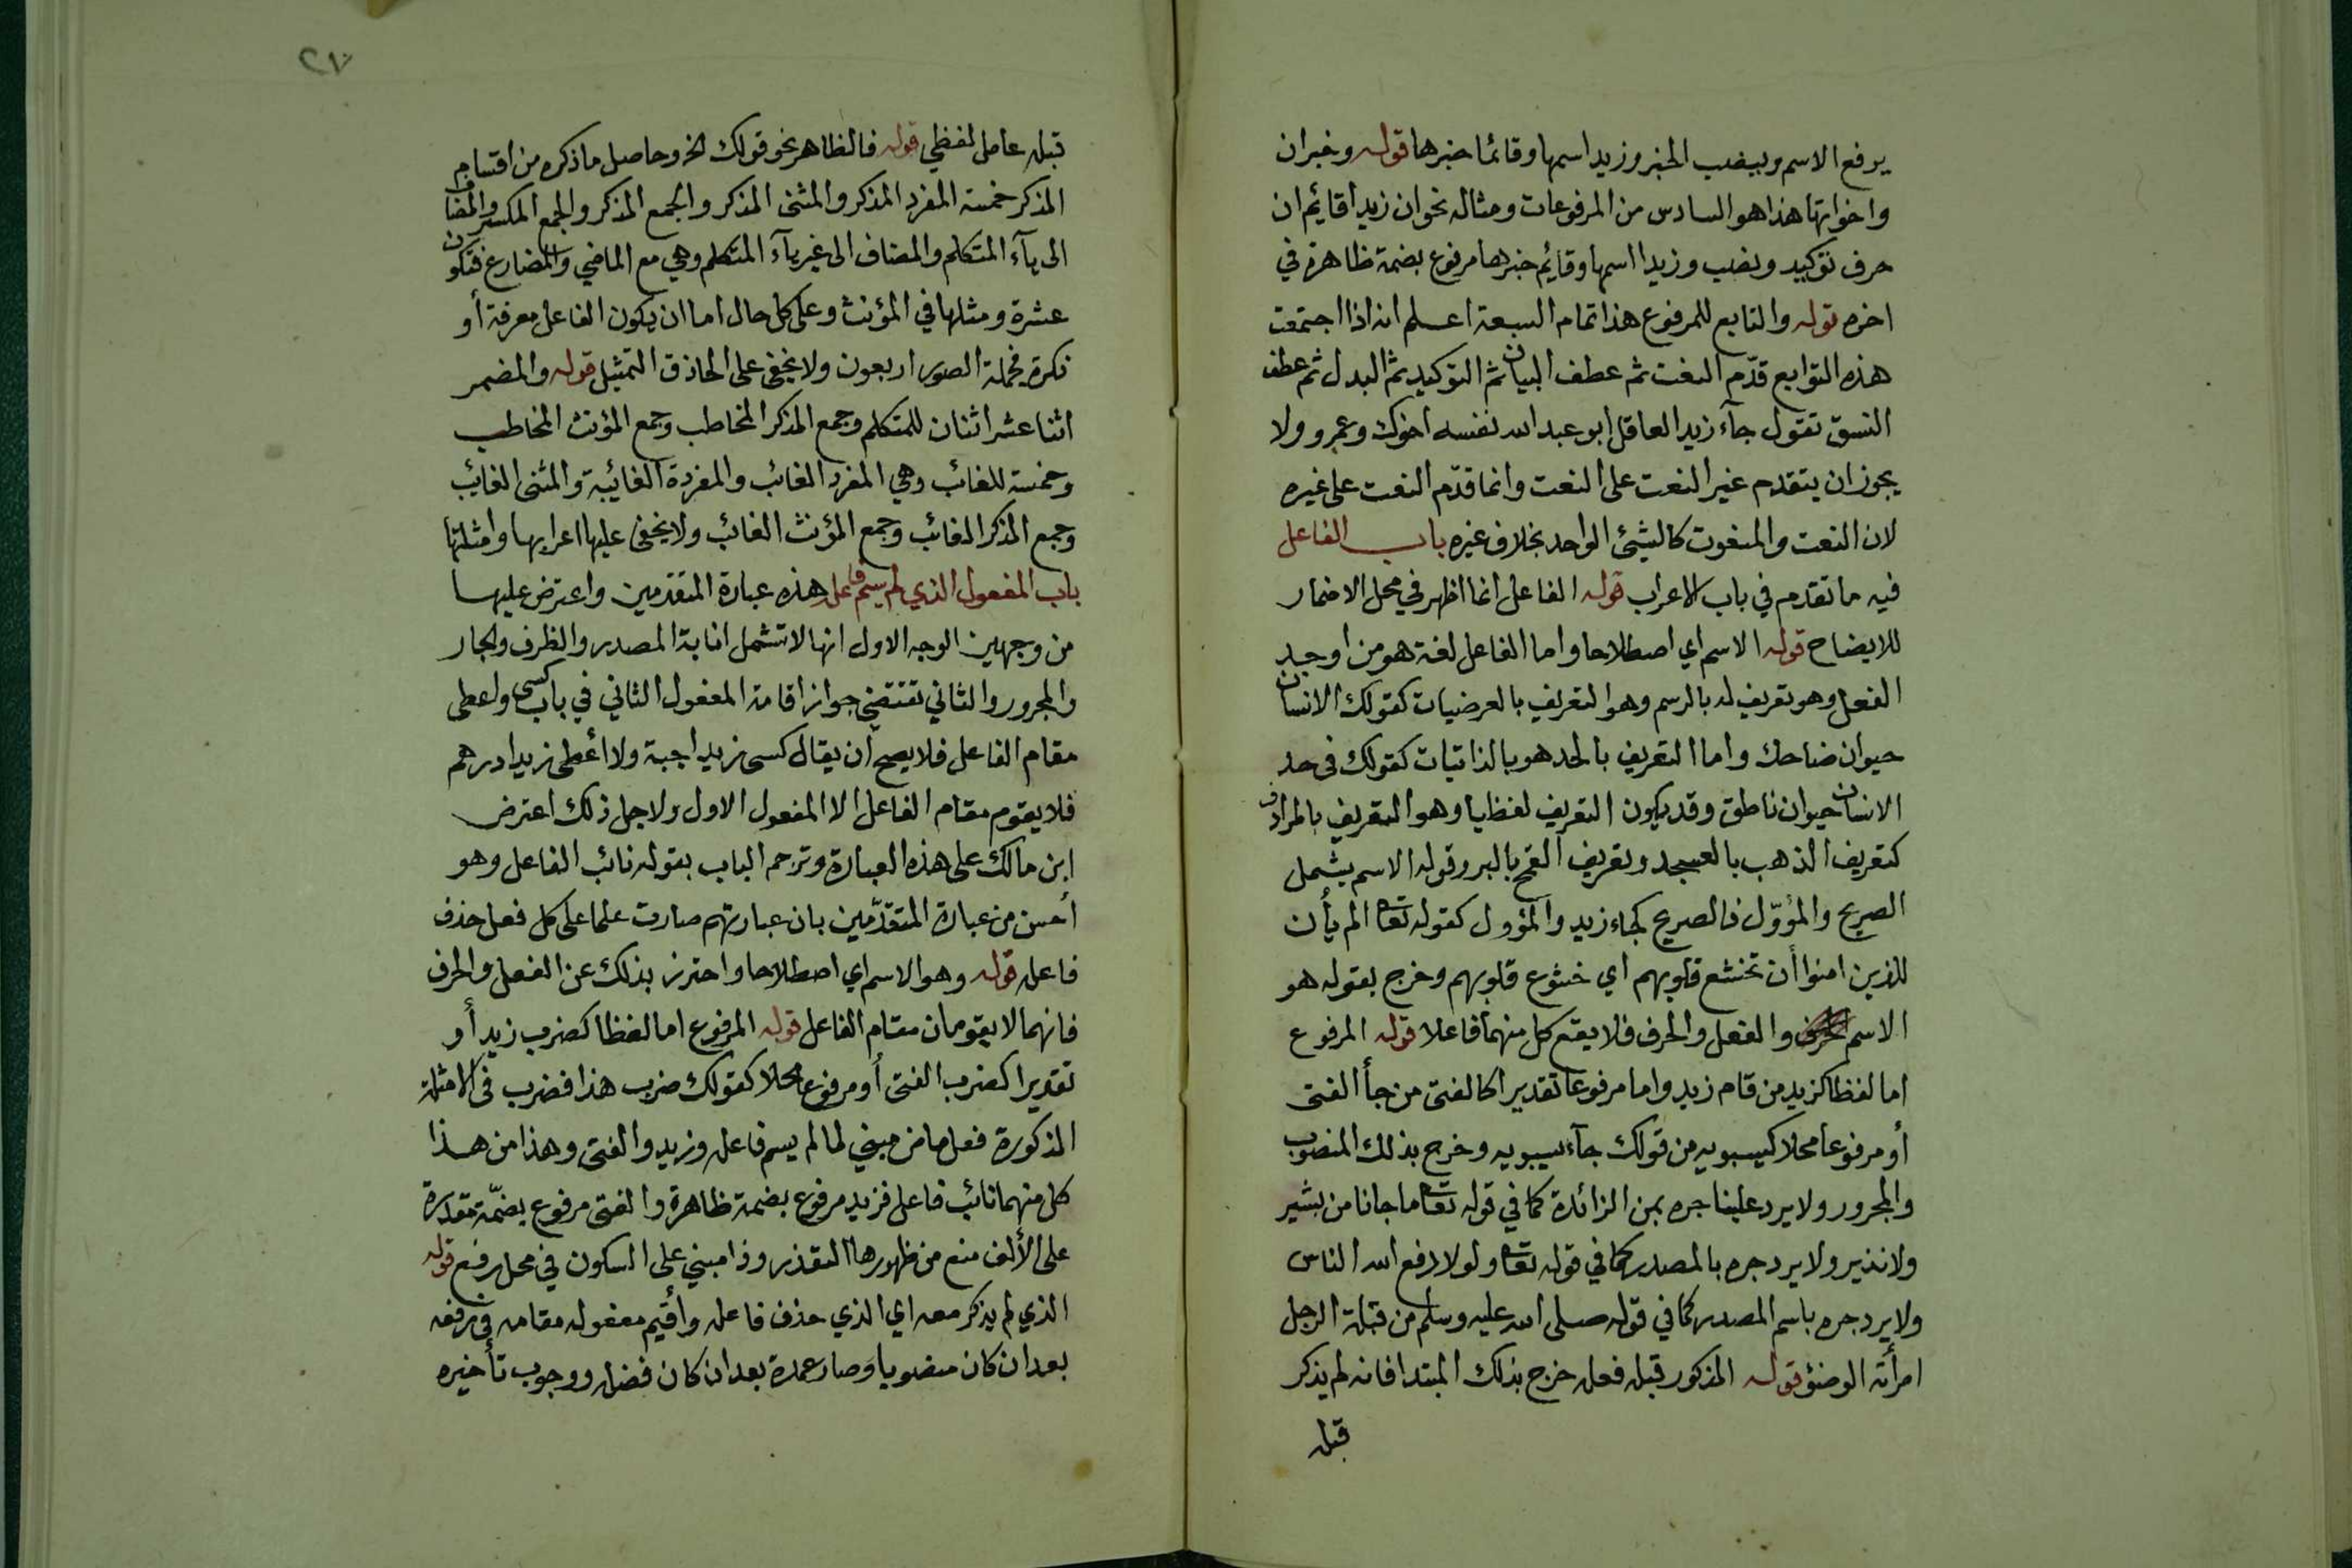 يرفع الاسم وينصب الخبر وزيد اسمها وقائما خبرها قوله وخبر ان
واخواتها هذا هو السادس من المرفوعات ومثاله نحو ان زيدا قائم ان
حرف توكيد ونصب وزيدا اسمها وقائم خبرها مرفوع بضمة ظاهرة في
اخره قوله والتابع للمرفوع هذا تمام السبعة اعلم انه اذا اجتمعت
هذه التوابع قدّم النعت ثم عطف البيان ثم التوكيد ثم البدل ثم عطف
النسق تقول جآء زيد العاقل ابو عبد الله نفسه اخوك وعمرو ولا
يجوز ان يتقدم غير النعت على النعت وانما قدّم النعت على غيره
لان النعت والمنعوت كالشيئ الواحد بخلاف غيره باب الفاعل
فيه ما تقدم في باب الاعراب قوله الفاعل انما اظهر في محل الاضمار
للايضاح قوله الاسم اي اصطلاحا واما الفاعل لغة هو من اوجد
الفعل وهو تعريف له بالرسم وهو التعريف بالعرضيات كقولك الانسان
حيوان ضاحك واما التعريف بالحد هو بالذاتيات كقولك في حد
الانسان حيوان ناطق وقد يكون التعريف لفظيا وهو التعريف بالمرادف
كتعريف الذهب بالعسجد وتعريف القمح بالبر وقوله الاسم يشمل
الصريح والمؤوّل فالصريح كجاء زيد والمؤول كقوله تعا الم يأن
للذين امنوا أن تخشع قلوبهم اي خشوع قلوبهم وخرج بقوله هو
الاسم والفعل والحرف فلا يقع كل منهما فاعلا قوله المرفوع
اما لفظا كزيد من قام زيد واما مرفوعا تقديرا كالفتى من جأ الفتى
أو مرفوعا محلا كسيبويه من قولك جآء سيبويه وخرج بذلك المنصوب
والمجرور ولا يرد علينا جره بمن الزائدة كما في قوله تعا ما جانا من بشير
ولا نذير ولا يرد جره بالمصدر كما في قوله تعا ولولا دفع الله الناس
ولا يرد جره باسم المصدر كما في قوله صلى الله عليه وسلم من قبلة الرجل
امرأته الوضؤ قوله المذكور قبله فعله خرج بذلك المبتدا فانه لم يذكر
قبله
٢٧
قبله عامل لفظي قوله فالظاهر نحو قولك الخ وحاصل ما ذكره من اقسام
المذكر خمسة المفرد المذكر والمثنى المذكر والجمع المذكر والجمع المكسر والمضاف
الى يآء المتكلم والمضاف الى غير يآء المتكلم وهي مع الماضي والمضارع فتكون
عشرة ومثلها في المؤنث وعلى كل حال اما ان يكون الفاعل معرفة أو
نكرة فجملة الصور اربعون ولا يخفى على الحاذق التمثيل قوله والمضمر
اثنا عشر اثنان للمتكلم وجمع المذكر المخاطب وجمع المؤنث المخاطب
وخمسة للغائب وهي المفرد الغائب والمفردة الغائبة والمثنى الغائب
وجمع المذكر الغائب وجمع المؤنث الغائب ولا يخفى عليها اعرابها وامثلتها
باب المفعول الذي لم يسم فاعله هذه عبارة المتقدمين واعترض عليها
من وجهين الوجه الاول انها لا تشمل انابة المصدر والظرف والجار
والمجرور والثاني تقتضي جواز اقامة المفعول الثاني في باب كسى واعطى
مقام الفاعل فلا يصح أن يقال كسى زيدا جبة ولا أعطى زيدا درهم
فلا يقوم مقام الفاعل الا المفعول الاول ولاجل ذلك اعترض
ابن مالك على هذه العبارة وترجم الباب بقوله نائب الفاعل وهو
أحسن من عبارة المتقدّمين بان عبارتهم صارت علما على كل فعل حذف
فاعله قوله وهو الاسم اي اصطلاحا واحترز بذلك عن الفعل والحرف
فانهما لا يقومان مقام الفاعل قوله المرفوع اما لفظا كضرب زيد أو
تقديرا كضرب الفتى أو مرفوع محلا كقولك ضرب هذا فضرب في الامثلة
المذكورة فعل ماض مبني لما لم يسم فاعله وزيد والفتى وهذا من هذا
كل منهما نائب فاعل فزيد مرفوع بضمة ظاهرة والفتى مرفوع بضمّة مقدرة
على الألف منع من ظهورها التعذر وذا مبني على السكون في محل رفع قوله
الذي لم يذكر معه اي الذي حذف فاعله وأقيم مفعوله مقامه في رفعه
بعد ان كان منصوبا وصار عمدة بعد ان كان فضله ووجوب تأخيره